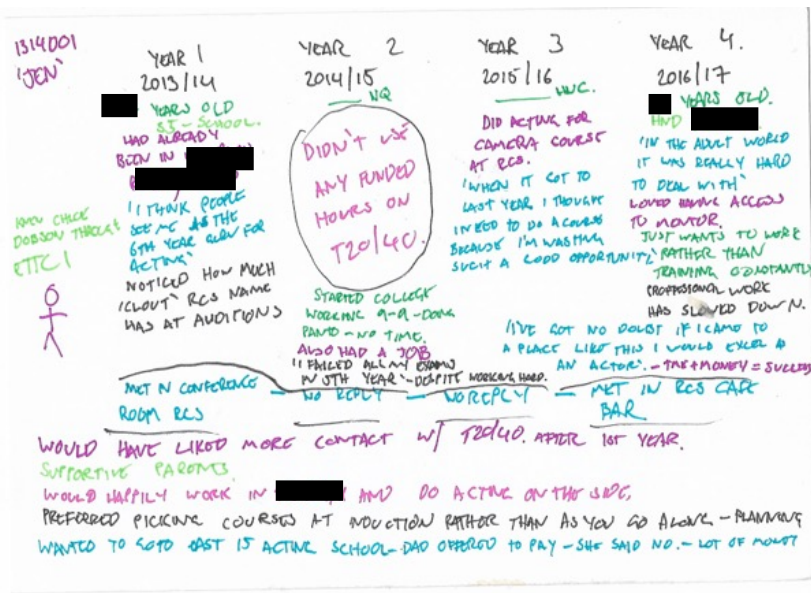 1314001
'JEN'
YEAR 1
2013/14
YEARS OLD
S5 - SCHOOL.
HAD ALREADY
BEEN IN
"I THINK PEOPLE
SEE ME AS THE
6TH YEAR GURU FOR
ACTING"
NOTICED HOW MUCH
'CLOUT' RCS NAME
HAS AT AUDITIONS
KNEW CHICK
DOBSON THROUGH
YEAR 2
2014/15
NQ
DIDN'T USE
ANY FUNDED
HOURS ON
T20/40.
STARTED COLLEGE
WORKING 9-9 - DOING
PANTO - NO TIME.
ALSO HAD A JOB
"I FAILED ALL MY EXAMS
IN 5TH YEAR" - DESPITE WORKING HARD.
YEAR 3
2015/16
HNC.
DID ACTING FOR
CAMERA COURSE
AT RCS.
"WHEN IT GOT TO
LAST YEAR I THOUGHT
I NEED TO DO A COURSE
BECAUSE I'M WASTING
SUCH A GOOD OPPORTUNITY"
YEAR 4.
2016/17
YEARS OLD.
HND
"IN THE ADULT WORLD
IT WAS REALLY HARD
TO DEAL WITH"
LOVED HAVING ACCESS
TO MENTOR.
JUST WANTS TO WORK
RATHER THAN
TRAINING CONSTANTLY
PROFESSIONAL WORK
HAS SLOWED DOWN.
"I'VE GOT NO DOUBT IF I CAME TO
A PLACE LIKE THIS I WOULD EXCEL AS
AN ACTOR". - TIME + MONEY = SUCCESS
MET IN CONFERENCE
ROOM RCS
- NO REPLY - NO REPLY -
MET IN RCS CAFE
BAR
WOULD HAVE LIKED MORE CONTACT W/ T20/40. AFTER 1ST YEAR.
SUPPORTIVE PARENTS.
WOULD HAPPILY WORK IN AND DO ACTING ON THE SIDE.
PREFERRED PICKING COURSES AT INDUCTION RATHER THAN AS YOU GO ALONG - PLANNING
WANTED TO GO TO EAST 15 ACTING SCHOOL - DAD OFFERED TO PAY - SHE SAID NO. - LOT OF MONEY